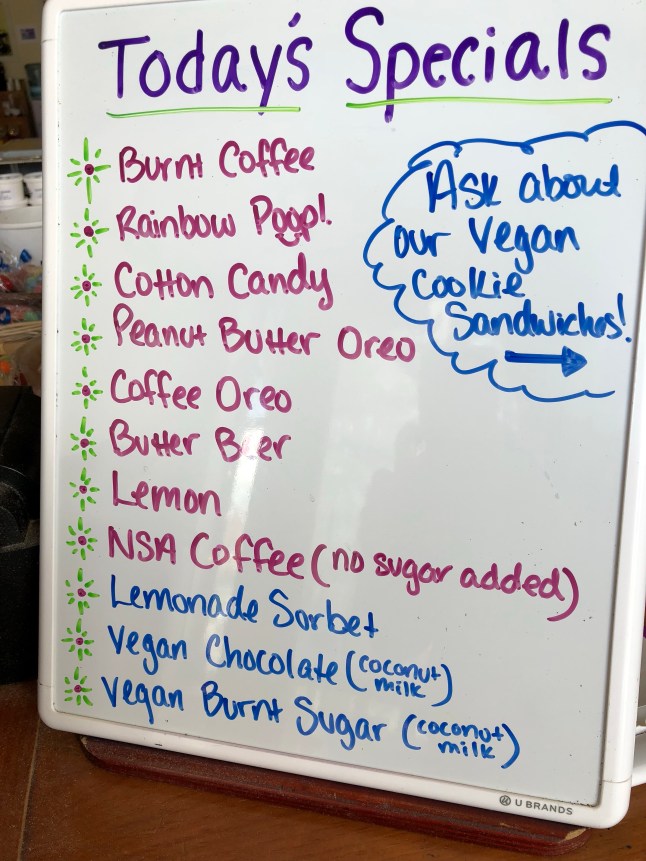 Today's Specials
Burnt Coffee
Rainbow Poop!
Cotton Candy
Peanut Butter Oreo
Coffee Oreo
Butter Beer
Lemon
NSA Coffee (no sugar added)
Lemonade Sorbet
Vegan Chocolate (coconut
milk)
Vegan Burnt Sugar (coconut
milk)
Ask about
our Vegan
Cookie
Sandwiches!
U BRANDS